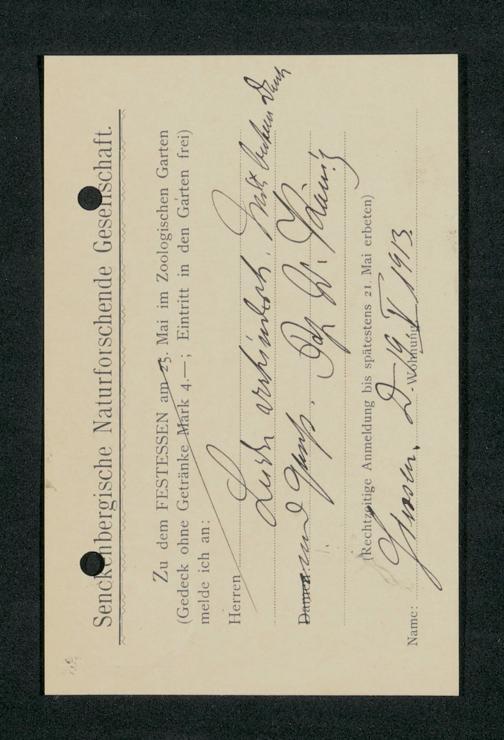 Senckenbergische Naturforschende Gesellschaft.
Zu dem FESTESSEN am 25. Mai im Zoologischen Garten
(Gedeck ohne Getränke Mark 4.—; Eintritt in den Garten frei)
melde ich an:
Herren
Leider verhindert. Mit bestem Dank
Damen und Gruß.
(Rechtzeitige Anmeldung bis spätestens 21. Mai erbeten)
Name: Giessen, D 19 V 1913. Wohnung